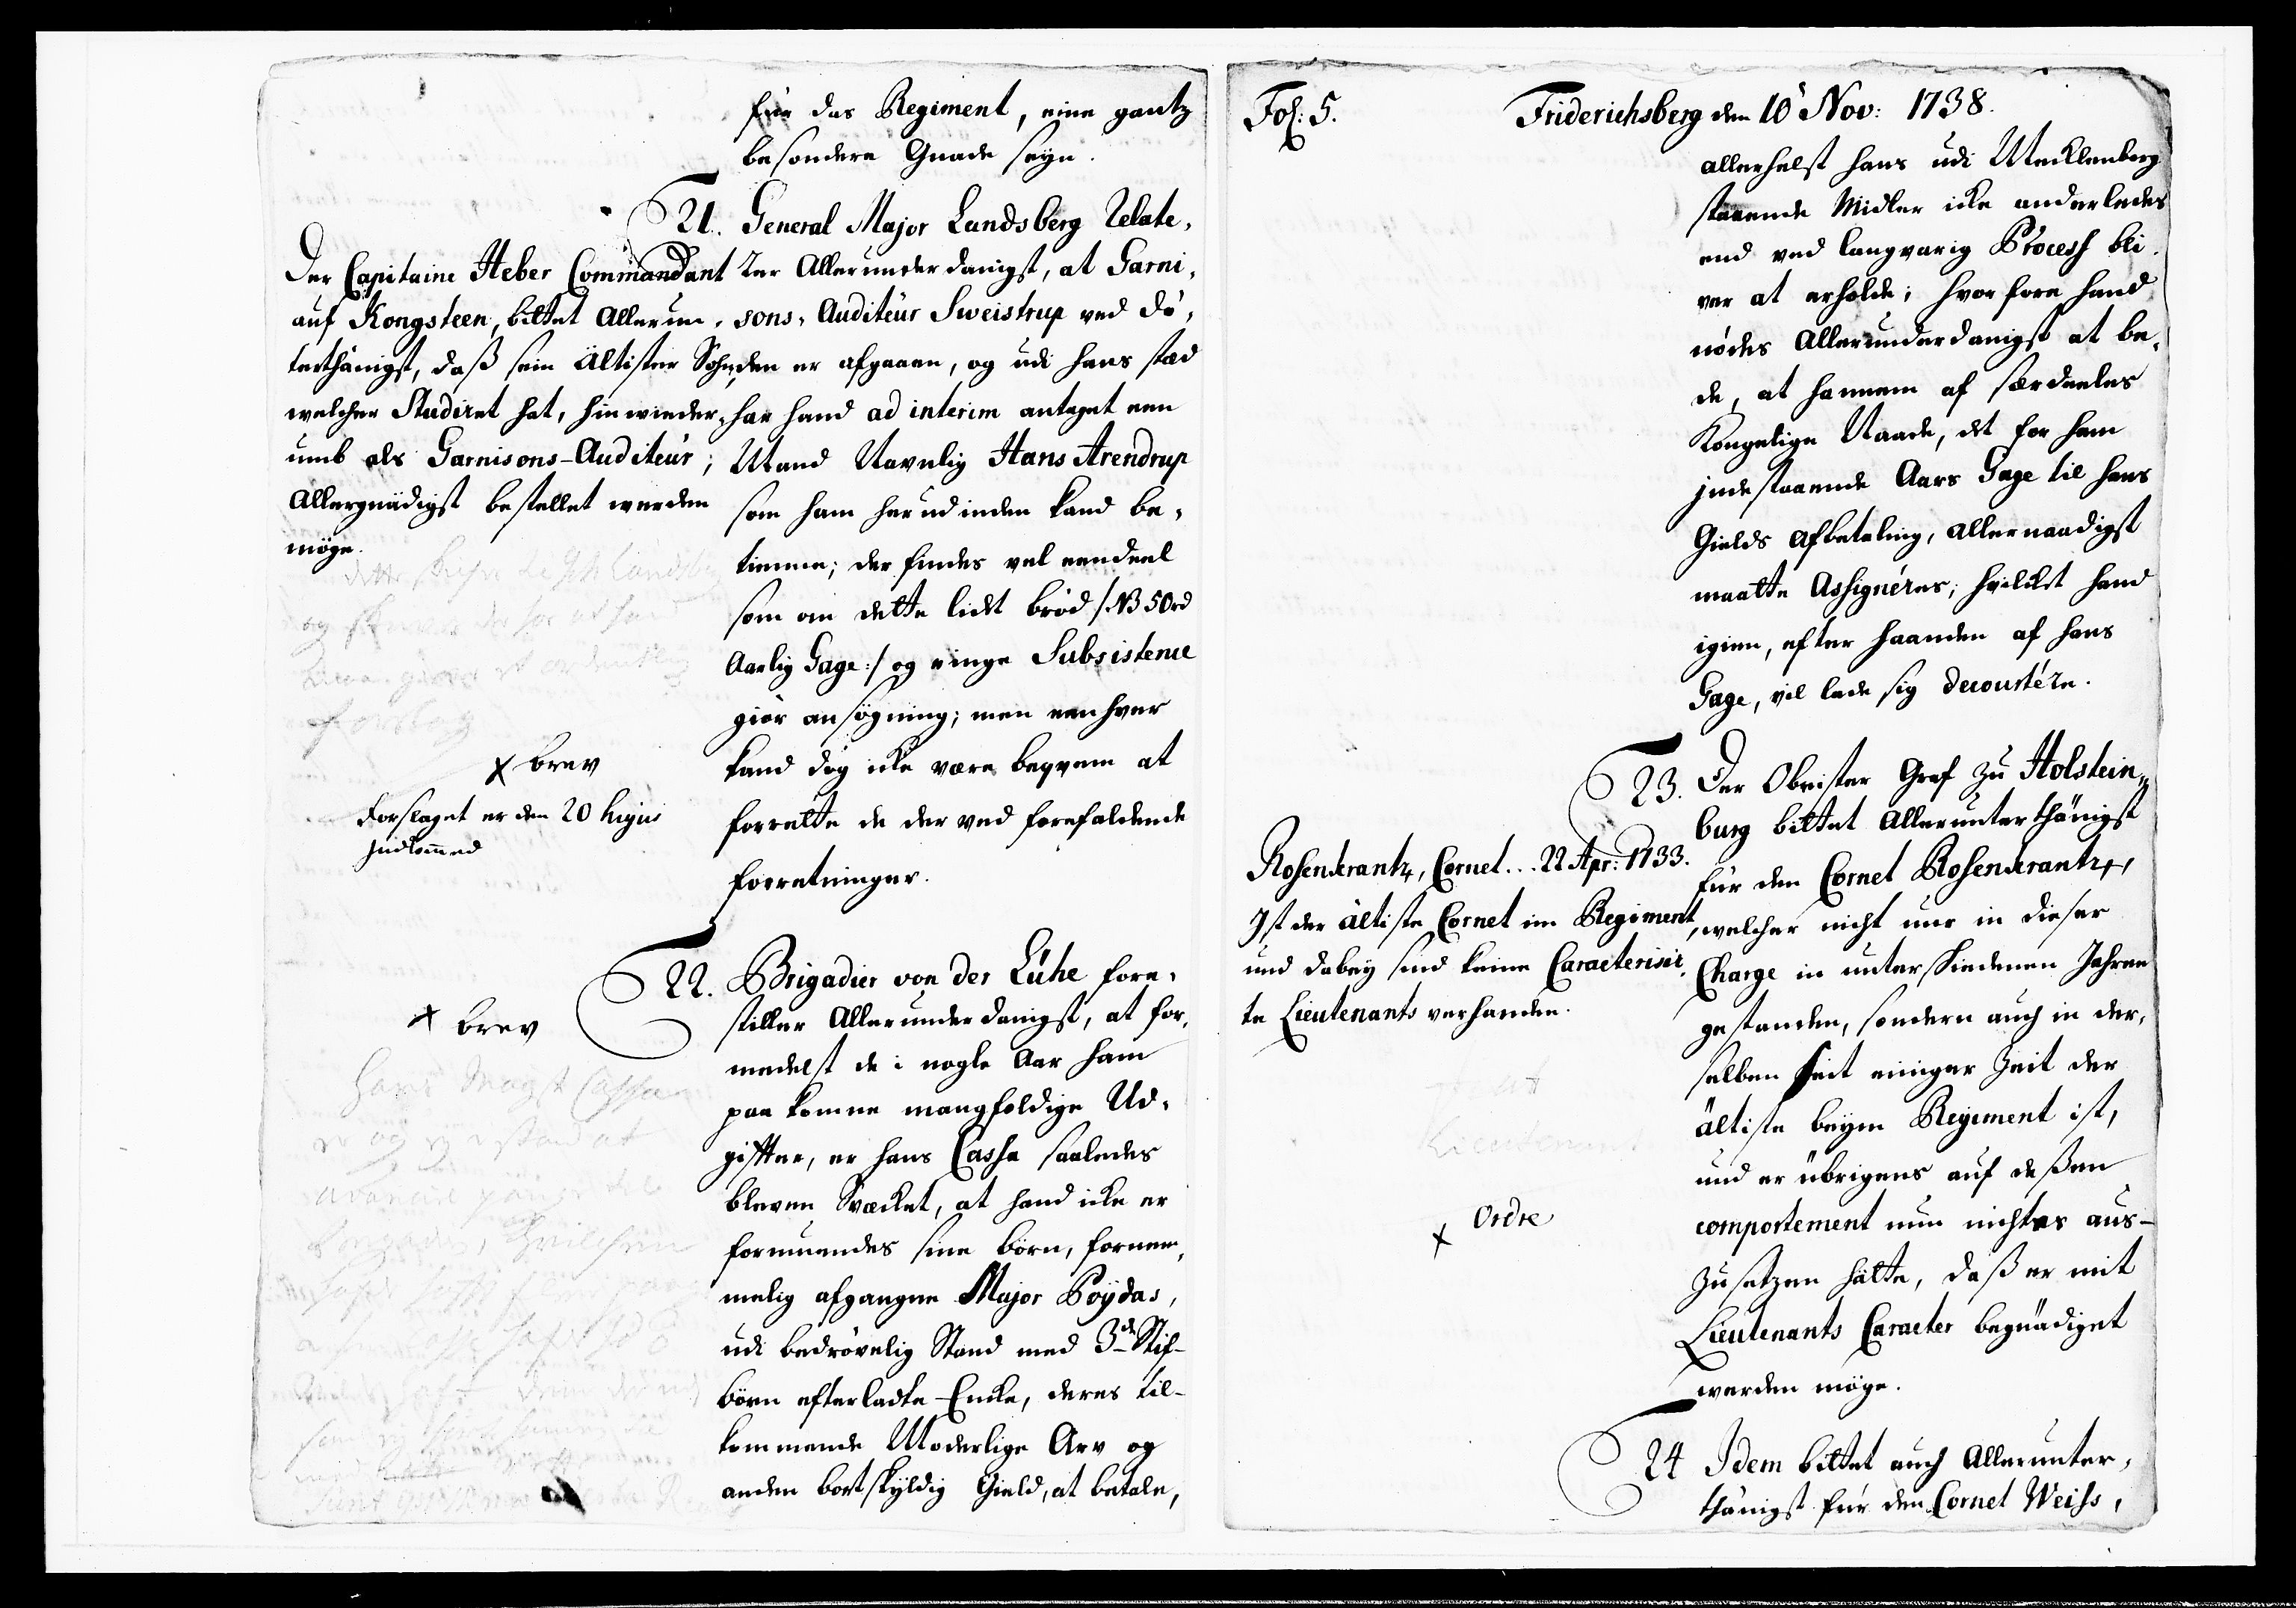 für das Regiment, eine gantz
besondere Gnade seyn.
21. General Major Landsberg relate,
rer Allerunderdanigst, at Garni,
sons, Auditeur Sweistrup ved dö,
den er afgaaen, og udi hans stæd
har hand ad interim antaget een
Mand Navnlig Hans Arendrup
som ham herudinden kand be,
tienne; der findes vel eendeel
som om dette lidt bröd /: NB 50rd
Aarlig Gage :/ og ringe Subsistence
giör ansögning; men eenhver
kand dog icke være beqvem at
forrette de der ved forefaldende
forretninger.
Der Capitaine Heber Commandant
auf Kongsteen, bittet Allerun,
terthänigst, daß sein ältister Sohn,
welcher Studiret hat, hinwieder,
umb als Garnisons-Auditeur;
Allergnädigst bestellet werden
möge.
x brev
Forslaget er den 20 hujus
Indkommed
22. Brigadier von der Lühe fore,
stiller Allerunderdanigst, at for,
medelst de i nogle Aar ham
paa komne mangfoldige Ud,
gifter, er hans Cassa saaledes
bleven Svæcket, at hand icke er
formuendes sine börn, fornem,
melig afgangne Major Poÿdas,
udi bedrövelig Stand med 3de Stif-
börn efterladte Encke, deres til-
kommende Moderlige Arv og
anden bortskyldig Gield, at betale,
x brev
Fol: 5.
Friderichsberg den 10 Nov: 1738.
allerhelst hans udi Mecklenborg
staaende Midler icke anderledes
end ved langvarig Process bli,
ver at erholde; hvorfore hand
nödes Allerunderdanigst at be,
de, at hannem af særdeeles
Kongelige Naade, det for ham
indestaaende Aars Gage til hans
Gields afbetaling, allernaadigst
maatte Assignéres; hvilket hand
igien, efter haanden af hans
Gage, vil lade sig decourtére.
23. Der Obrister Graf zu Holstein,,
burg bittet Allerunterthänigst
für den Cornet Rosenkrantz,
welcher nicht nur in dieser
Charge in unterschiedenen Jahren
gestanden, sondern auch in der,
selben seit einiger Zeit der
ältiste beym Regiment ist,
und er übrigens auf deßen
comportement nun nichtes aus-
zusetzen hätte, daß er mit
Lieutenants Caracter begnädiget
werden möge.
Rosenkrantz, Cornet... 22 Apr: 1733.
Ist der ältiste Cornet im Regiment,
und dabey sind keine Caracterisir,
te Lieutenants verhanden.
x Ordre
24 Idem bittet auch Allerunter,
thänigst für den Cornet Weiss,